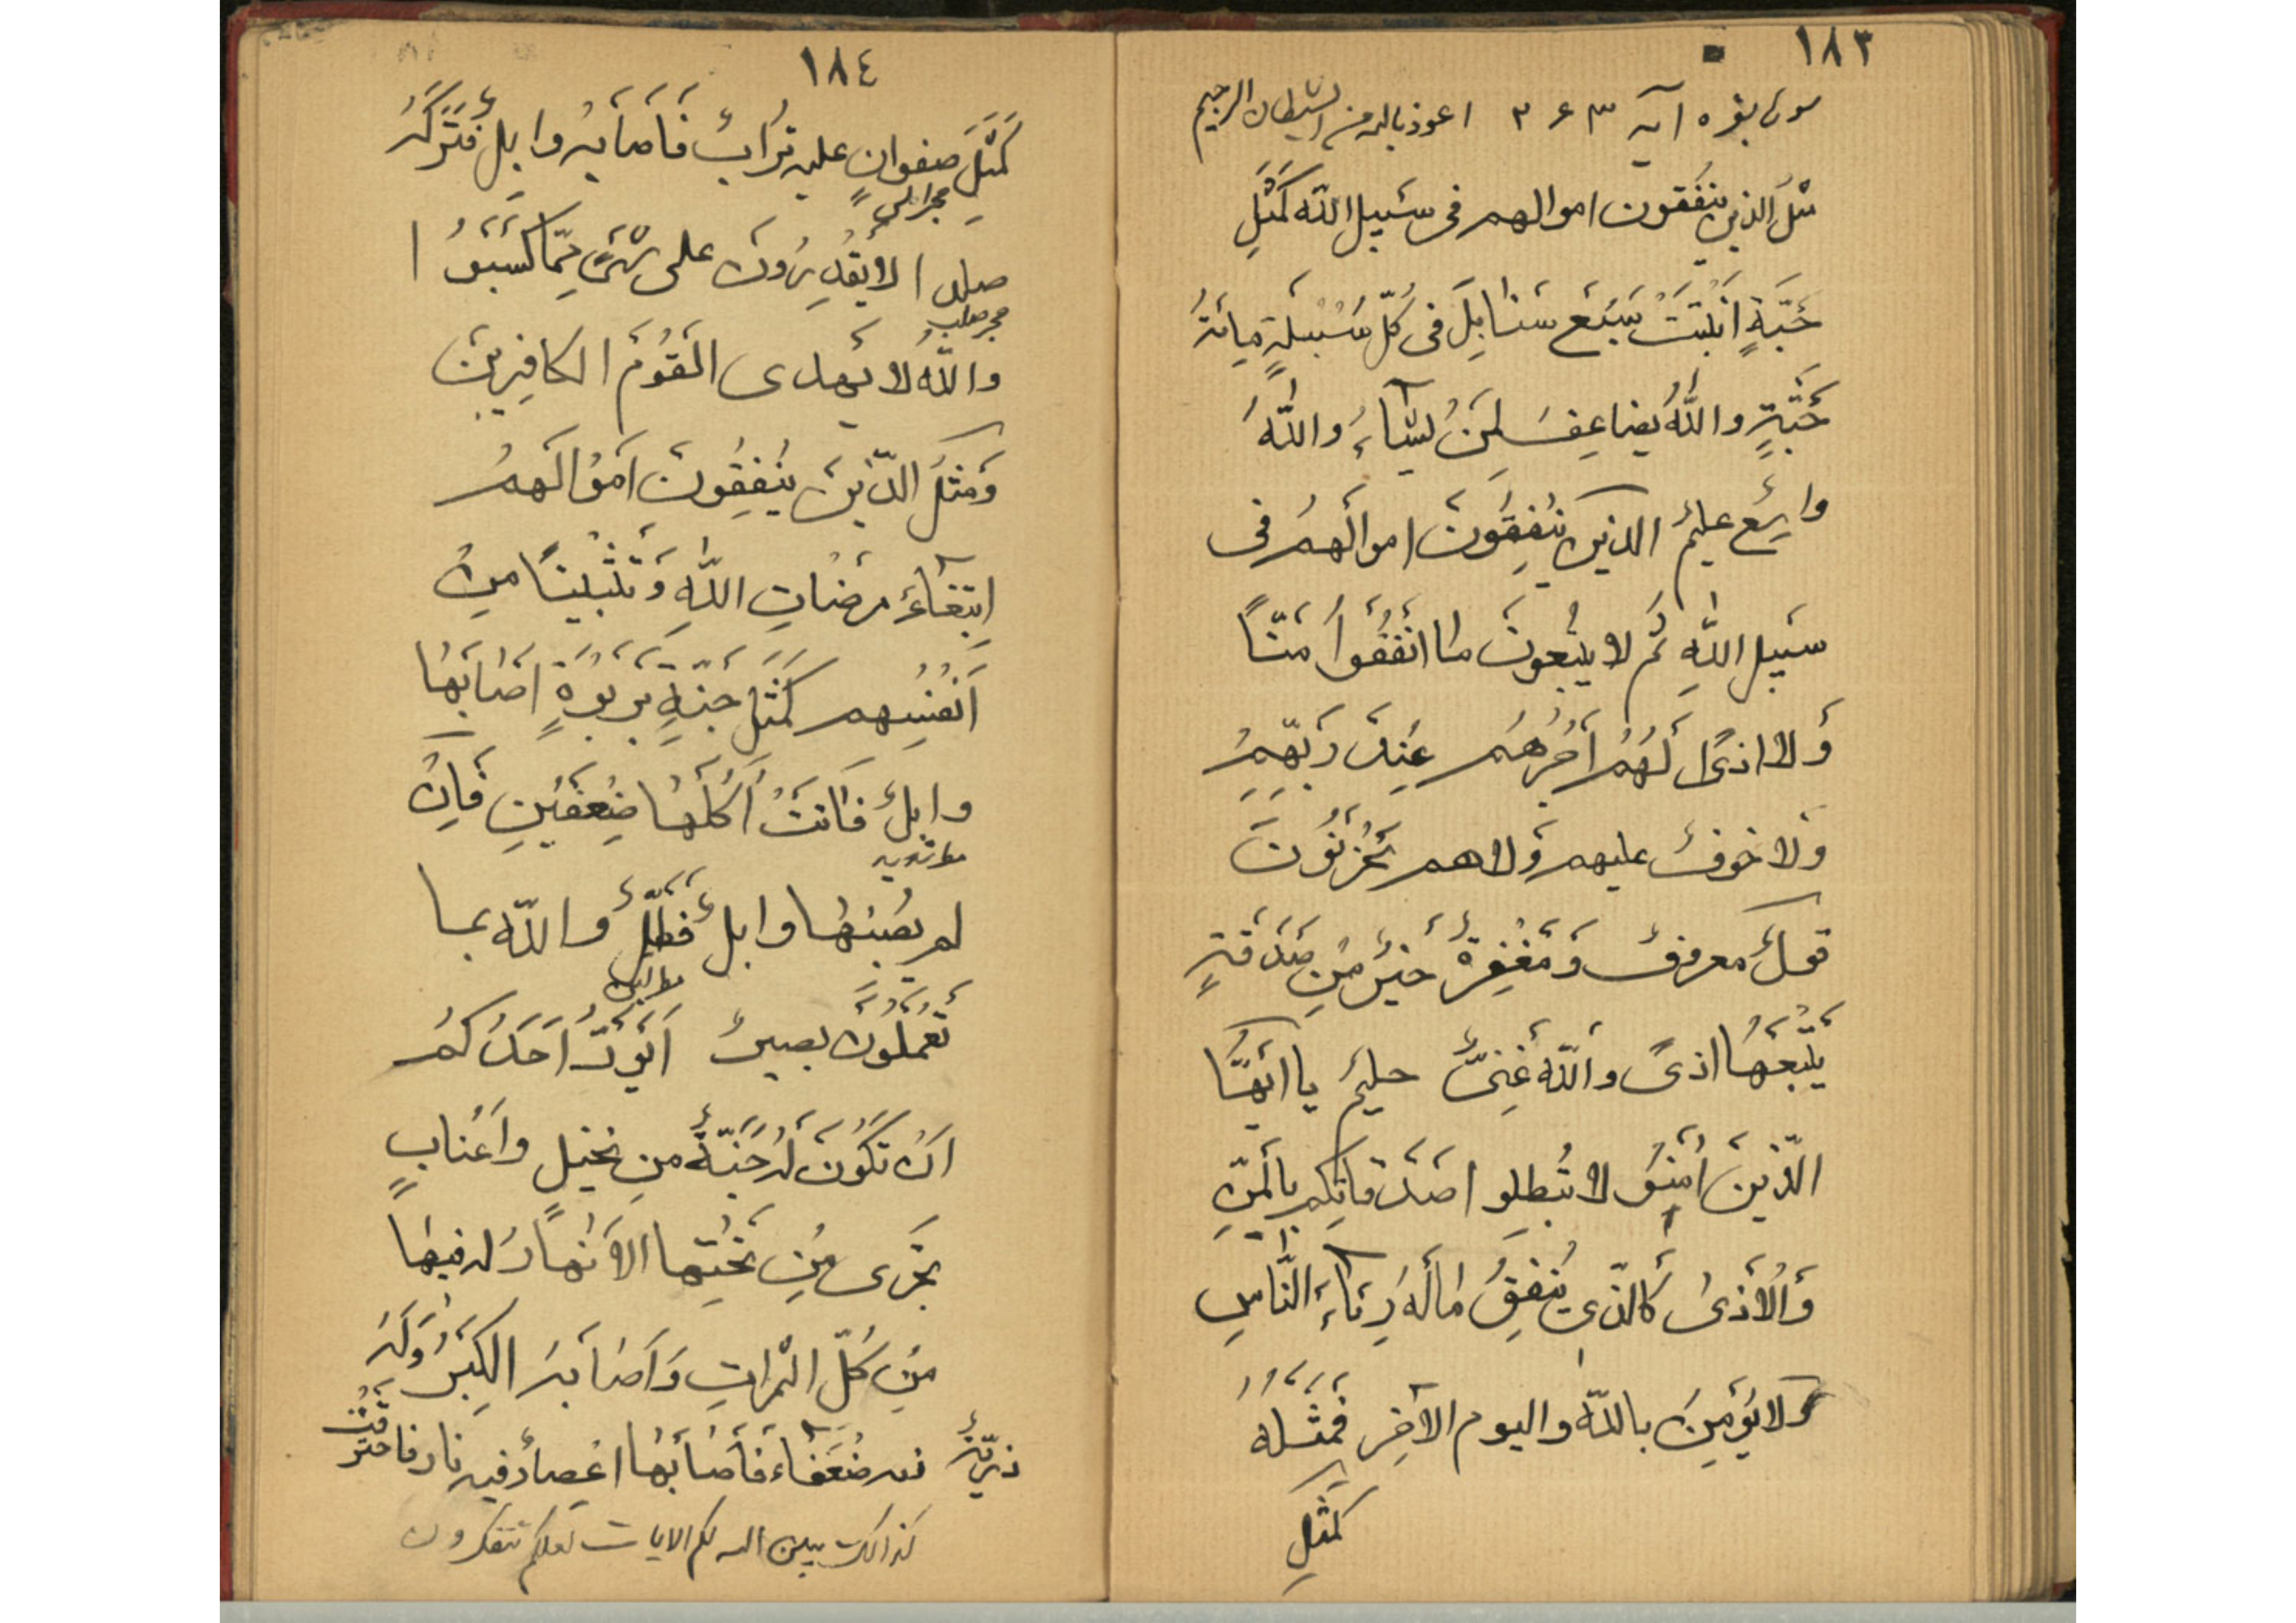 ١٨٣
سوره بقره آیه ٢٦٣ اعوذ بالله من الشیطان الرجیم
مَثَلُ الذین ینفَقون اموالهم فی سَبیل الله کَمَثَلِ
حَبَّةٍ انبَتَتْ سَبْعَ سَنابِلَ فی کُلّ سُنبُلَةٍ مِائةُ
حَبَّةٍ واللّٰهُ یضاعِفُ لِمَنْ یشآءُ واللّٰهُ
واسِعٌ علیمٌ الذین یُنْفِقُونَ اموالَهمْ فی
سَبیلِ اللّٰهِ ثُمَّ لا یتْبِعونَ ما انْفَقُوا مَنّاً
وَلا اذیً لَهُمْ اَجْرُهُم عِنْدَ رَبّهِمْ
وَلا خوفٌ علیهم وَلا هم یَحْزَنُونَ
قولٌ معروفٌ وَمَغْفِرَةٌ خَیْرٌ مِنْ صَدَقَةٍ
یَتْبَعُهٰا اذیً واللّٰهُ غَنِیٌّ حلیمٌ یا ایّهَا
الّذینَ اٰمَنُو لا تُبطِلو اصَدَقاتِکم بالْمَنِّ
وَالْاَذیٰ کَالّذی یُنْفِقُ مٰالَهُ رِئآءَ النّٰاسِ
وَلا یُؤمِنُ باللّٰه والیوم الآخِر فَمَثَلُهُ
کَمَثَلِ
١٨٤
کَمَثَلِ صفوانٍ علیه تُرابٌ فَاَصابَهُ وابلٌ فَتَرَکَهُ
صلدا لا یَقْدِرُونَ علی شَیْءٍ مِمّا کَسَبُوْا
حجر صلب
واللّٰهُ لا یَهدی الْقَوْمَ الکافِرینَ
وَمَثَلُ الّذینَ یُنْفِقُونَ اَمْوالَهمْ
ابتِغآءَ مرضٰاتِ اللّٰهِ وَتَثْبیتاً مِنْ
اَنْفُسِهم کَمَثَلِ جَنّةٍ بِرَبْوَةٍ اَصٰابَهٰا
وابِلٌ فَاٰتَتْ اُکُلَهٰا ضِعْفَیْنِ فَاِنْ
لم یُصِبْهٰا وابلٌ فَطَلٌّ واللّٰه بما
تَعْمَلُونَ بصیرٌ اَیَوَدُّ اَحَدُکُمْ
اَنْ تَکُونَ لَهُ جَنَّةٌ مِن نخیلٍ واَعْنابٍ
تَجْری مِنْ تَحْتِها الاَنْهارُ لَه فیهٰا
مِنْ کُلّ الثمراتِ وَاَصٰابَهُ الکِبَرُ وَلَهُ
ذرّیّةٌ ضُعَفآءُ فَاَصٰابَهٰا اعْصارٌ فیه نار فاحترقَتْ
کذالک یبین الله لکم الایات لعلکم تتفکرون